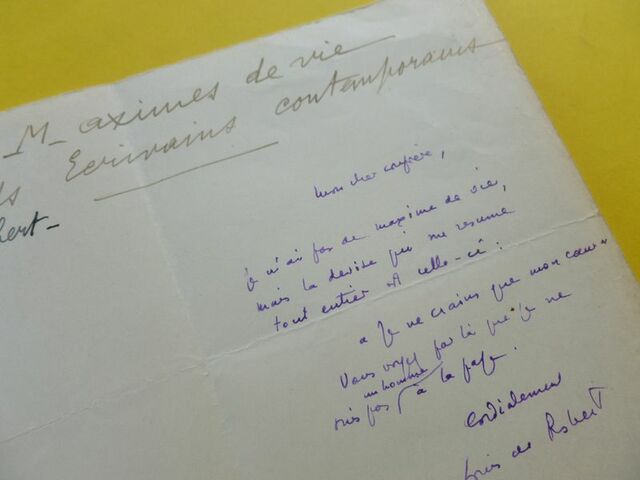 M-aximes de vie
Ecrivains contemporains
mon cher confrère,
Je n'ai pas de maxime de vie,
mais la devise qui me résume
tout entier est celle-ci :
« Je ne crains que mon cœur »
Vous voyez par là que je ne
un homme
suis pas à la page.
Cordialement
Louis de Robert